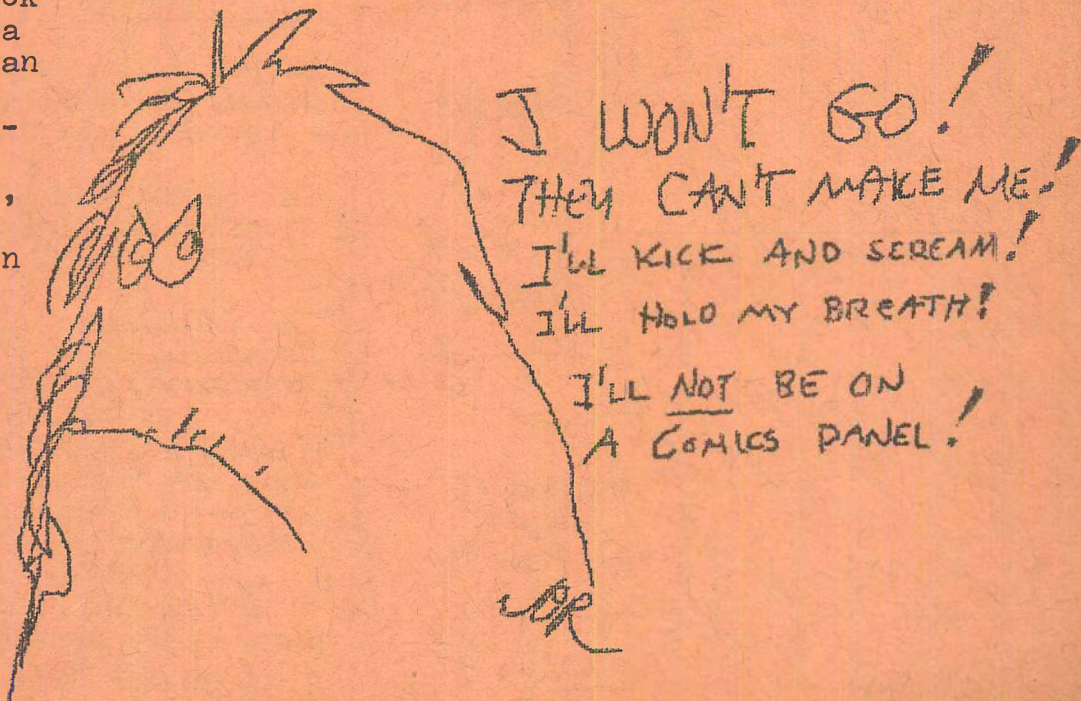 ok
a
an
-
,
n
I WON'T GO!
THEY CAN'T MAKE ME!
I'LL KICK AND SCREAM!
I'LL HOLD MY BREATH!
I'LL NOT BE ON
A COMICS PANEL!